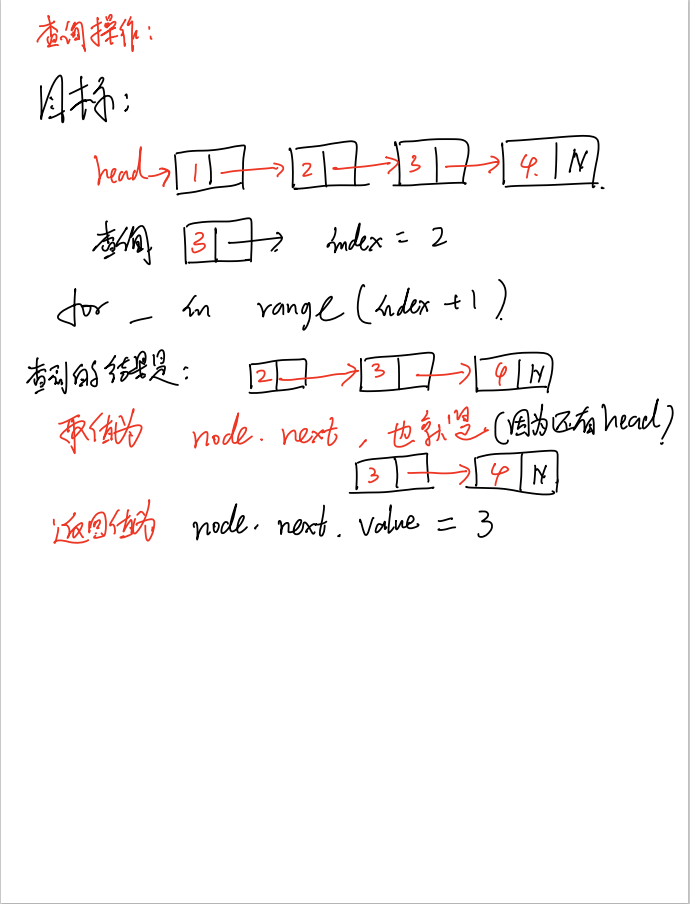 查询操作:
目标:
head→ 1 → 2 → 3 → 4 N
查询 3 → index = 2
for _ in range (index +1)
查到的结果是: 2 → 3 → 4 N
取值为 node.next, 也就是 (因为还有head)
3 → 4 N
返回值为 node.next.value = 3